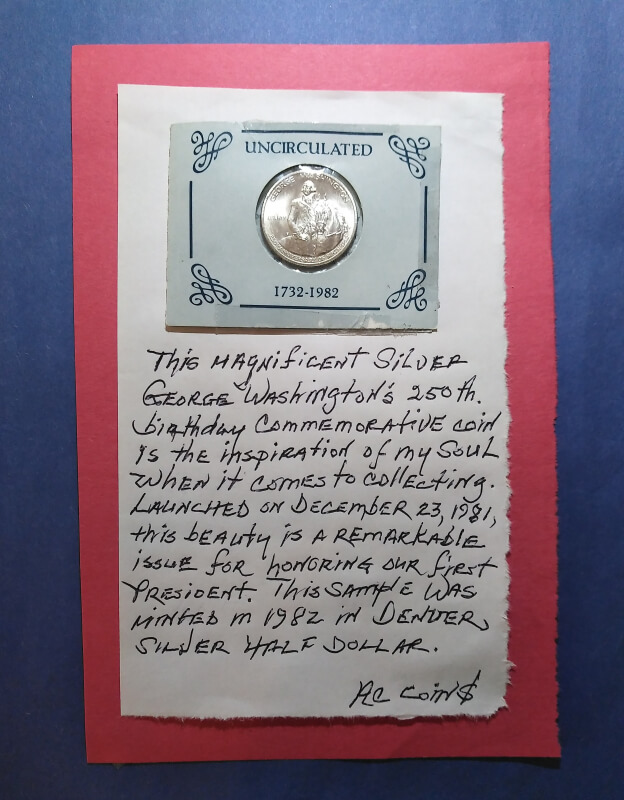 UNCIRCULATED
GEORGE WASHINGTON
1732-1982
This MAGNificENT SiLVER
GEORGE Washington's 250th.
birthday COMMEMORATIVE coin
is the inspiration of my SOUL
WHEN it COMES to collecting.
LAUNCHED ON DECEMBER 23, 1981,
this bEAUTY is A REMARKABLE
issuE foR honoRING OUR first
PRESIDENT. This SAMPLE WAS
MINTED in 1982 in DENVER,
SILVER HALF DOLLAR.
AC COIN$